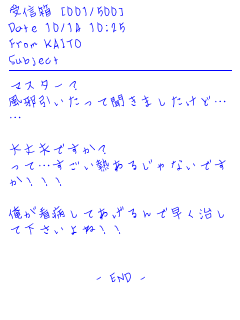 受信箱 [001/500]
Date 10/14 10:25
From KAITO
Subject
マスター？
風邪引いたって聞きましたけど…
…
大丈夫ですか？
って…すごい熱あるじゃないです
か！！！
俺が看病してあげるんで早く治し
て下さいよね！！
- END -